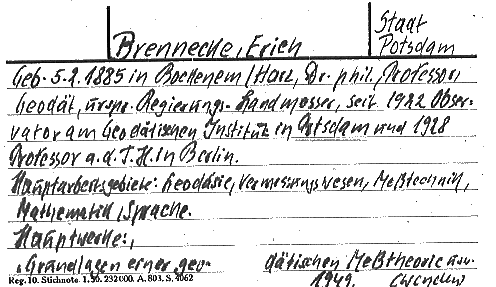 Brennecke, Erich
Staat
Potsdam
Geb. 5.2.1885 in Bockenem/Harz, Dr. phil., Professor,
Geodät, urspr. Regierungs-Landmesser, seit 1922 Obser-
vator am Geodätischen Institut in Potsdam und 1928
Professor a. d. T.H. in Berlin.
Hauptarbeitsgebiete: Geodäsie, Vermessungswesen, Meßtechnik,
Mathematik, Sprache.
Hauptwerke:,
"Grundlagen einer geo-
dätischen Meßtheorie
Reg. 10. Stichnote. 1. 50. 232000. A. 803. S. 4062
1949.